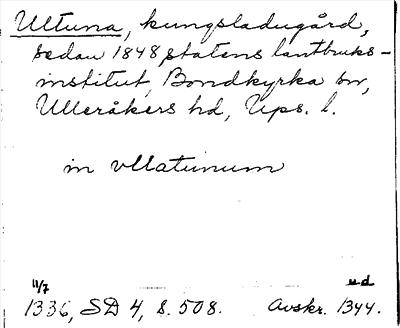 Ultuna, kungsladugård,
sedan 1848, statens lantbruks-
institut, Bondkyrka sn,
Ulleråkers hd, Ups. l.
in vllatunum
11/7 u d
1336, SD 4, s. 508. Avskr. 1344.